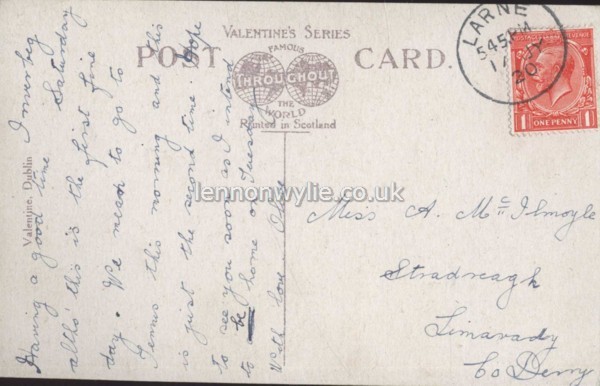 VALENTINE'S SERIES
POST CARD.
FAMOUS
THROUGHOUT
THE
WORLD
Printed in Scotland
LARNE
5 45 PM
JY
20
POSTAGE & REVENUE
1 ONE PENNY 1
Valentine, Dublin
lennonwylie.co.uk
Miss A. McIlmoyle
Stradreagh
Limavady
Co Derry
Saturday
Having a good time
altho' this is the first fine
day. We mean to go to
Tennis this morning and this
is just the second time. Hope
to see you soon as I intend
to be home on Tuesday
With love